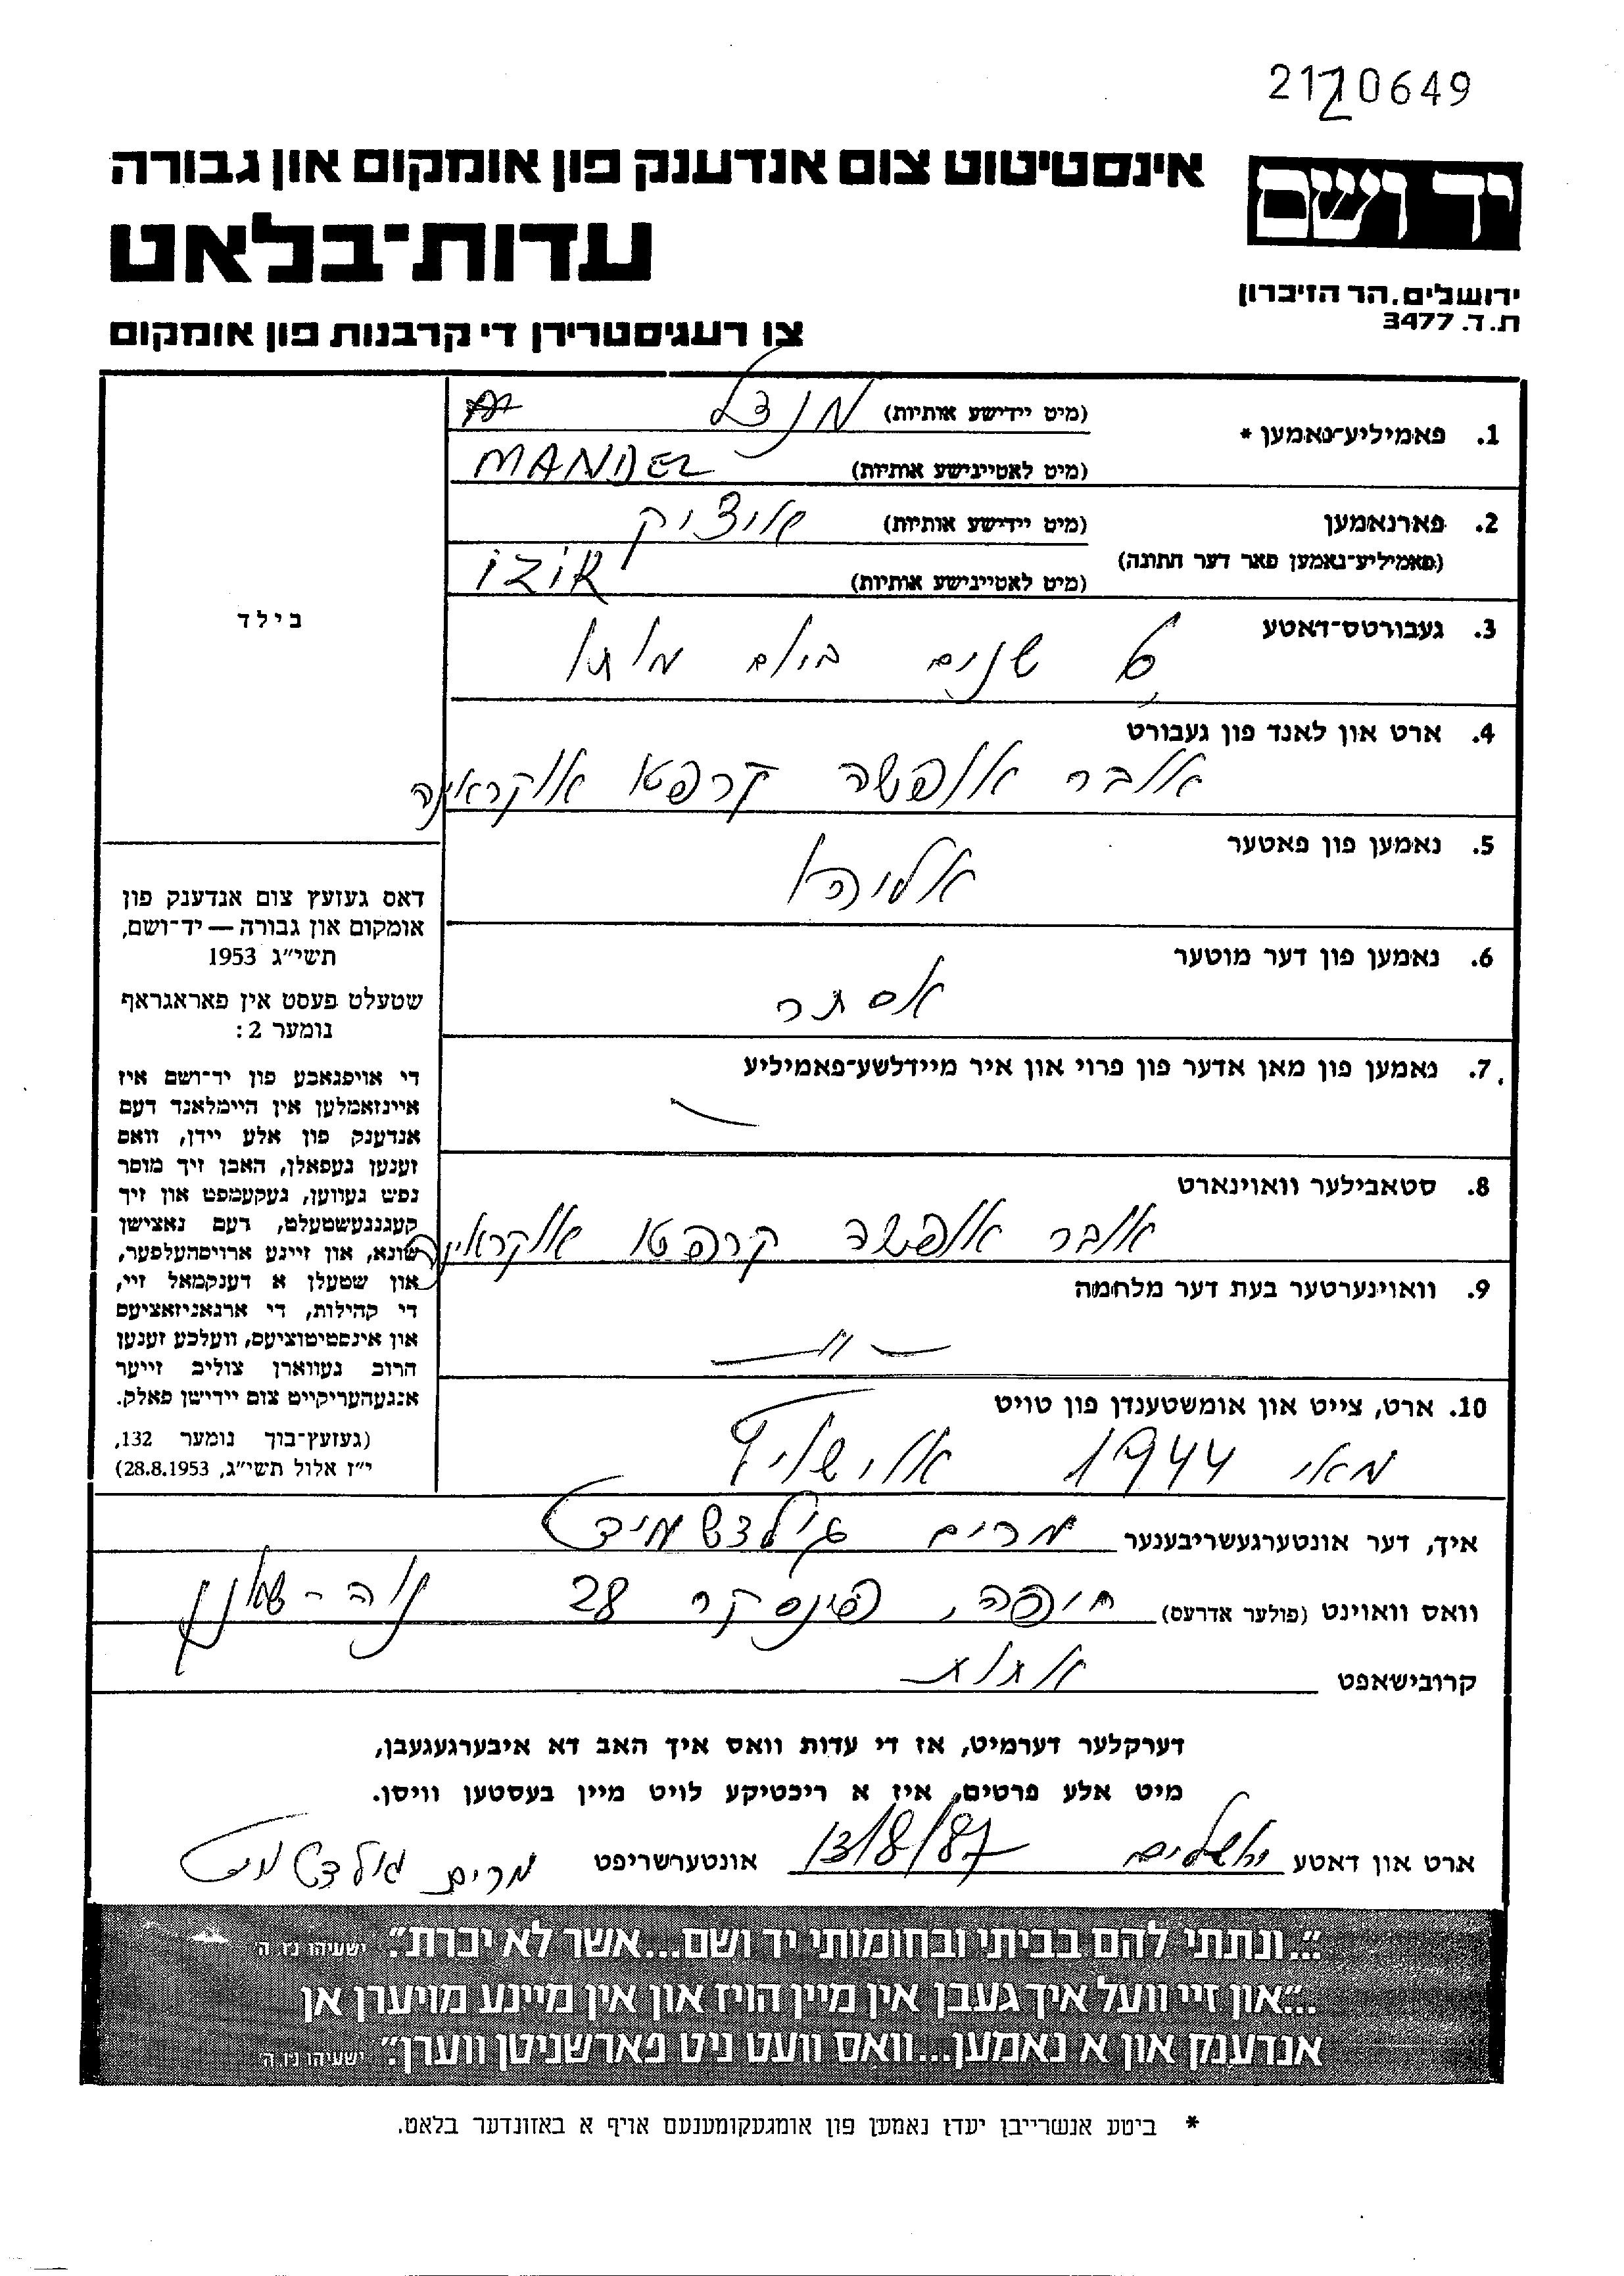 2120649
אינסטיטוט צום אנדענק פון אומקום און גבורה
יד ושם
עדות־בלאט
ירושלים, הר הזיכרון
ת. ד. 3477
צו רעגיסטרירן די קרבנות פון אומקום
1. פאמיליע־נאמען *
(מיט יידישע אותיות) מנדל
(מיט לאטיינישע אותיות) MANDEL
2. פארנאמען
(פאמיליע־נאמען פאר דער חתונה)
(מיט יידישע אותיות) איציק
(מיט לאטיינישע אותיות) IZIK
3. געבורטס־דאטע
6 שנים ביום מותו
4. ארט און לאנד פון געבורט
אובר אופשה קרפטו אוקראינה
5. נאמען פון פאטער
אליהו
6. נאמען פון דער מוטער
אסתר
7. נאמען פון מאן אדער פון פרוי און איר מיידלשע־פאמיליע
—
8. סטאבילער וואוינארט
אובר אופשה קרפטו אוקראינה
9. וואוינערטער בעת דער מלחמה
— " —
10. ארט, צייט און אומשטענדן פון טויט
מאי 1944 אושויץ
בילד
דאס געזעץ צום אנדענק פון
אומקום און גבורה — יד־ושם,
תשי"ג 1953
שטעלט פעסט אין פאראגראף
נומער 2:
די אויפגאבע פון יד־ושם איז
איינזאמלען אין היימלאנד דעם
אנדענק פון אלע יידן, וואס
זענען געפאלן, האבן זיך מוסר
נפש געווען, געקעמפט און זיך
קעגנגעשטעלט, דעם נאצישן
שונא, און זיינע ארויסהעלפער,
און שטעלן א דענקמאל זיי,
די קהילות, די ארגאניזאציעס
און אינסטיטוציעס, וועלכע זענען
הרוב געווארן צוליב זייער
אנגעהעריקייט צום יידישן פאלק.
(געזעץ־בוך נומער 132,
י"ז אלול תשי"ג, 28.8.1953)
איך, דער אונטערגעשריבענער מרים גולדשמיט
וואס וואוינט (פולער אדרעס) חיפה, פינסקר 28 נוה-שאנן
קרובישאפט אחות
דערקלער דערמיט, אז די עדות וואס איך האב דא איבערגעגעבן,
מיט אלע פרטים, איז א ריכטיקע לויט מיין בעסטען וויסן.
ארט און דאטע ירושלים 13/8/87 אונטערשריפט מרים גולדשמיט
"...ונתתי להם בביתי ובחומותי יד ושם...אשר לא יכרת." ישעיהו נ"ו, ה'
..."און זיי וועל איך געבן אין מיין הויז און אין מיינע מויערן אן
אנדענק און א נאמען...וואס וועט ניט פארשניטן ווערן." ישעיהו נ"ו, ה'
* ביטע אנשרייבן יעדן נאמען פון אומגעקומענעם אויף א באזונדער בלאט.